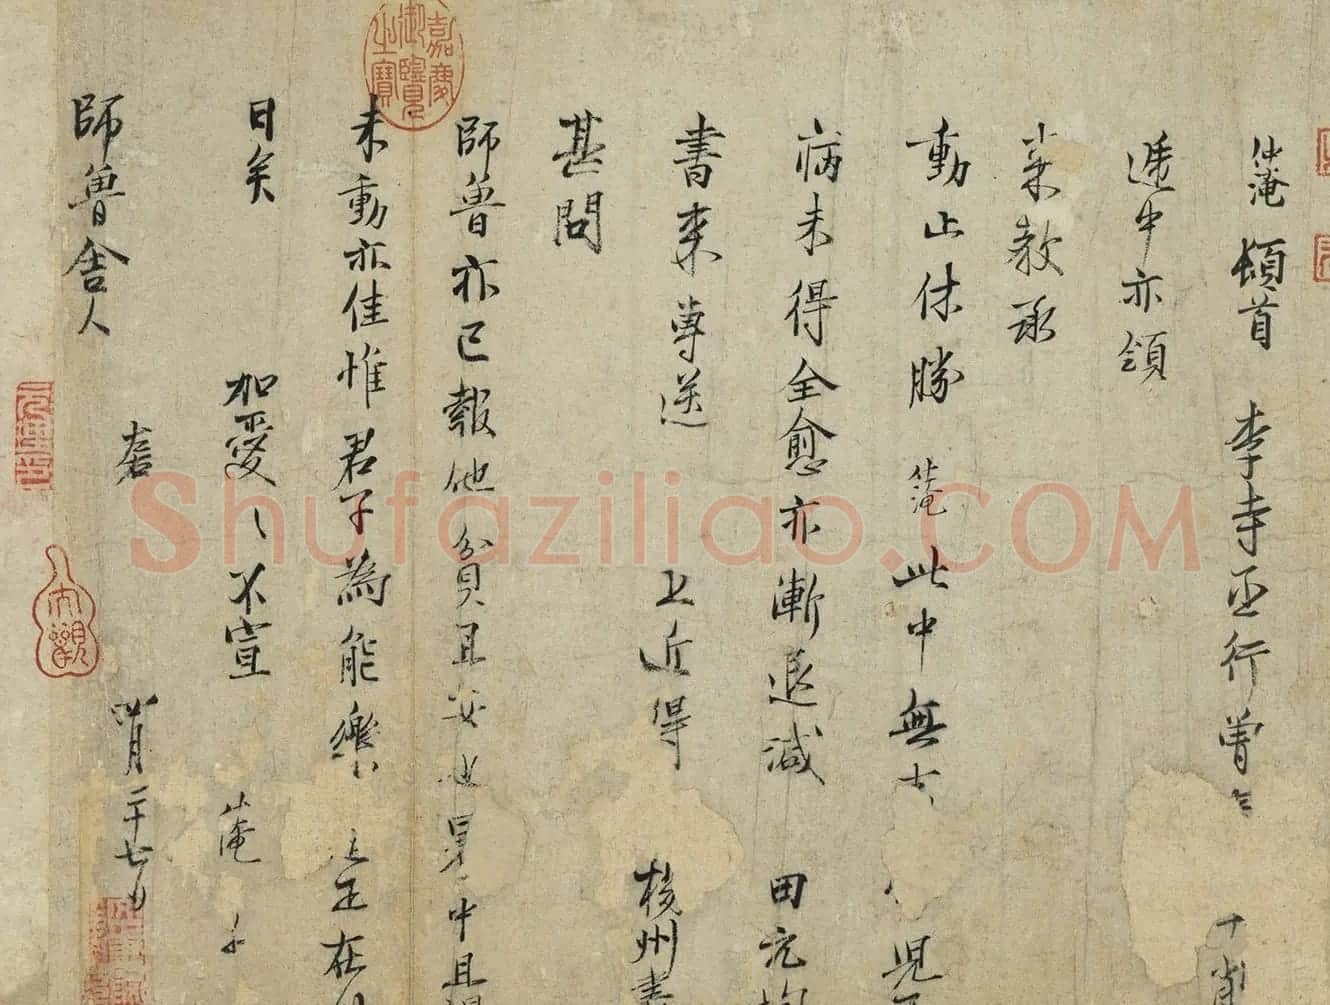 仲淹 頓首 李寺丞行曾
遞中亦領
来教承
動止休勝 仲淹 此中無大 児
病未得全愈亦漸退減 田元均
書来專送 上近得 州書
甚問
師魯亦已報他貧且安也暑中且得
未動亦佳惟君子為能樂 正在
日矣 加愛〻不宣 仲淹
師魯舍人 四月二十七日
嘉慶御覽之寶
大觀
Shufaziliao.COM